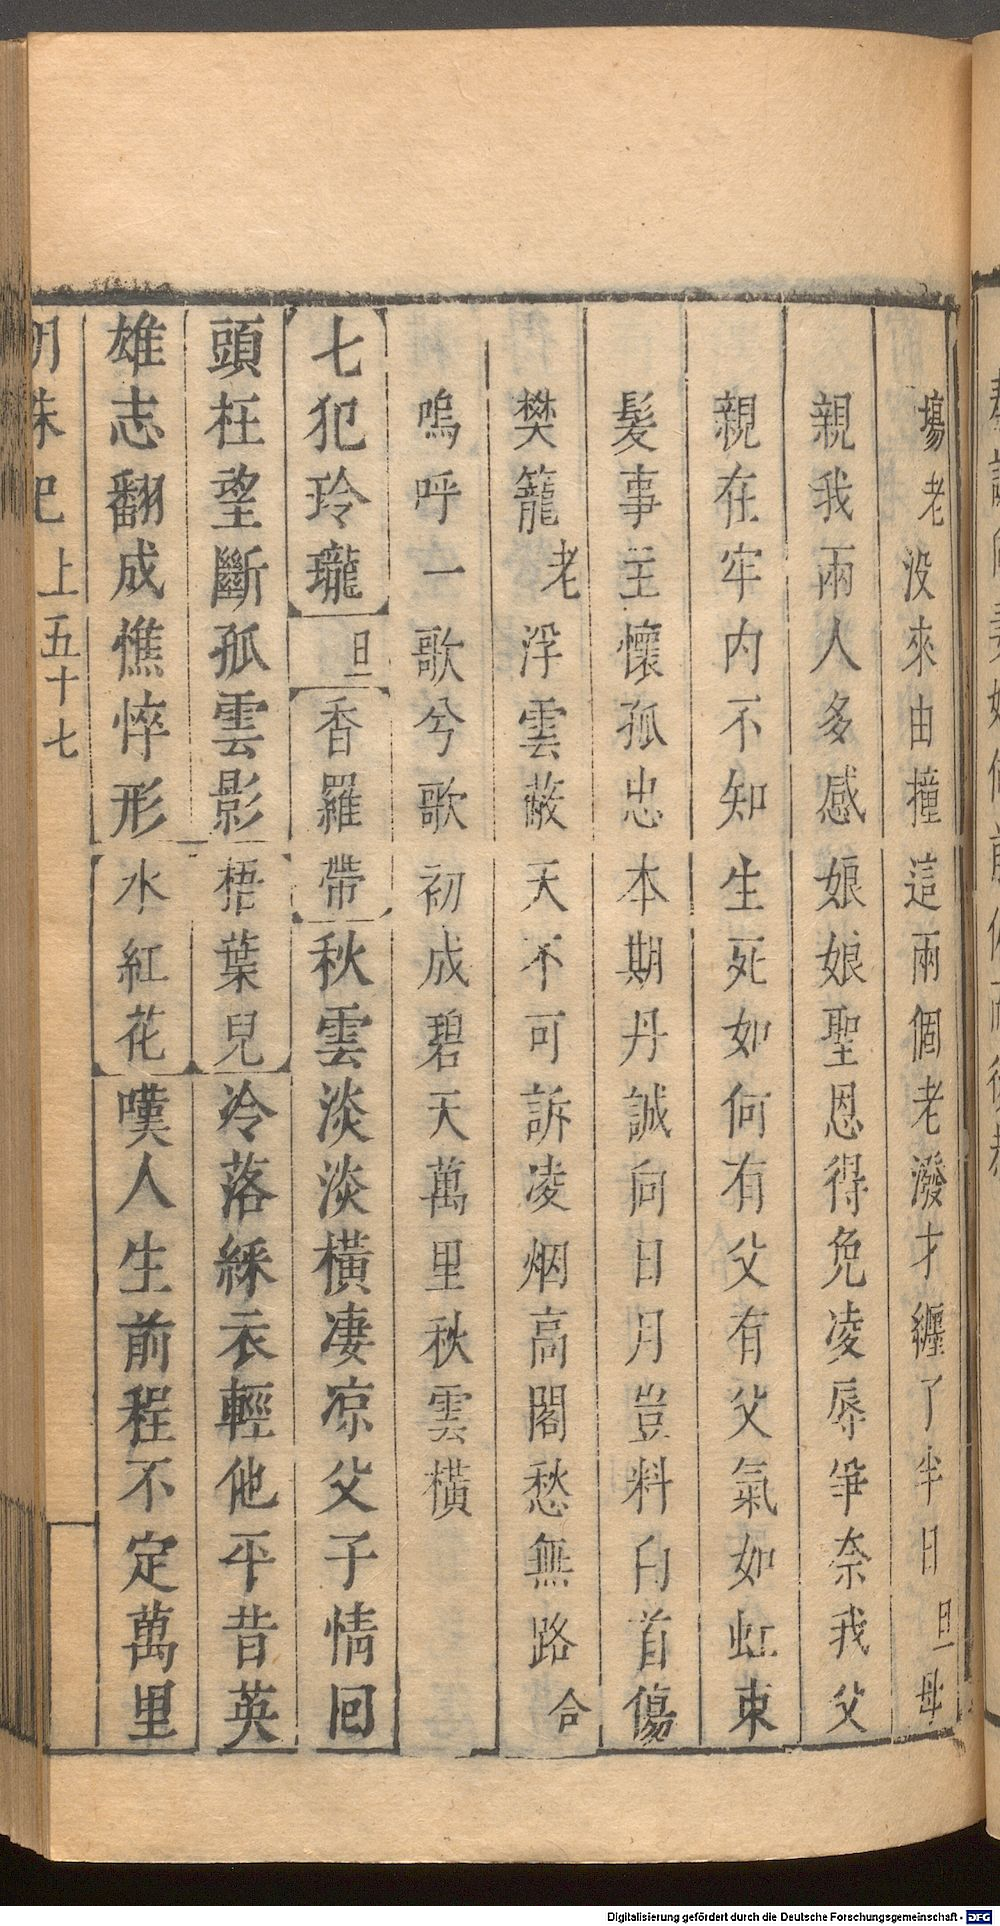 場老没來由撞這兩個老潑才纏了半日旦母
親我兩人多感娘娘聖恩得免凌辱爭奈我父
親在牢内不知生死如何有父有父氣如虹束
髮事主懷孤忠本期丹誠向日月豈料白首傷
樊籠老浮雲蔽天天不可訴凌烟高閣愁無路合
嗚呼一歌兮歌初成碧天萬里秋雲橫
七犯玲瓏旦香羅帶秋雲淡淡橫凄凉父子情回
頭枉望斷孤雲影梧葉兒冷落綵衣輕他平昔英
雄志翻成憔悴形水紅花嘆人生前程不定萬里
明珠記 上五十七
Digitalisierung gefördert durch die Deutsche Forschungsgemeinschaft - DFG